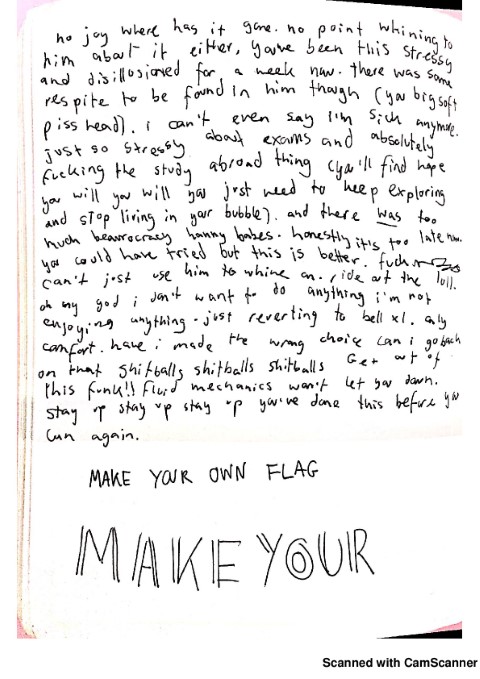 no joy where has it gone. no point whining to
him about it either, you've been this stressy
and disillusioned for a week now. there was some
respite to be found in him though (you big soft
piss head). i can't even say i'm sick anymore.
just so stressy about exams and absolutely
fucking the study abroad thing (ya'll find hope
you will you will you just need to keep exploring
and stop living in your bubble). and there was too
much beaurocracy hanny babes. honestly it's too late now.
you could have tried but this is better. fuck
can't just use him to whine on. ride out the lull.
oh my god i don't want to do anything i'm not
enjoying anything. just reverting to bell x1. only
comfort. have i made the wrong choice can i go back
on that shitballs shitballs shitballs Get out of
this funk!! fluid mechanics won't let you down.
stay up stay up stay up you've done this before you
can again.
MAKE YOUR OWN FLAG
MAKE YOUR
Scanned with CamScanner